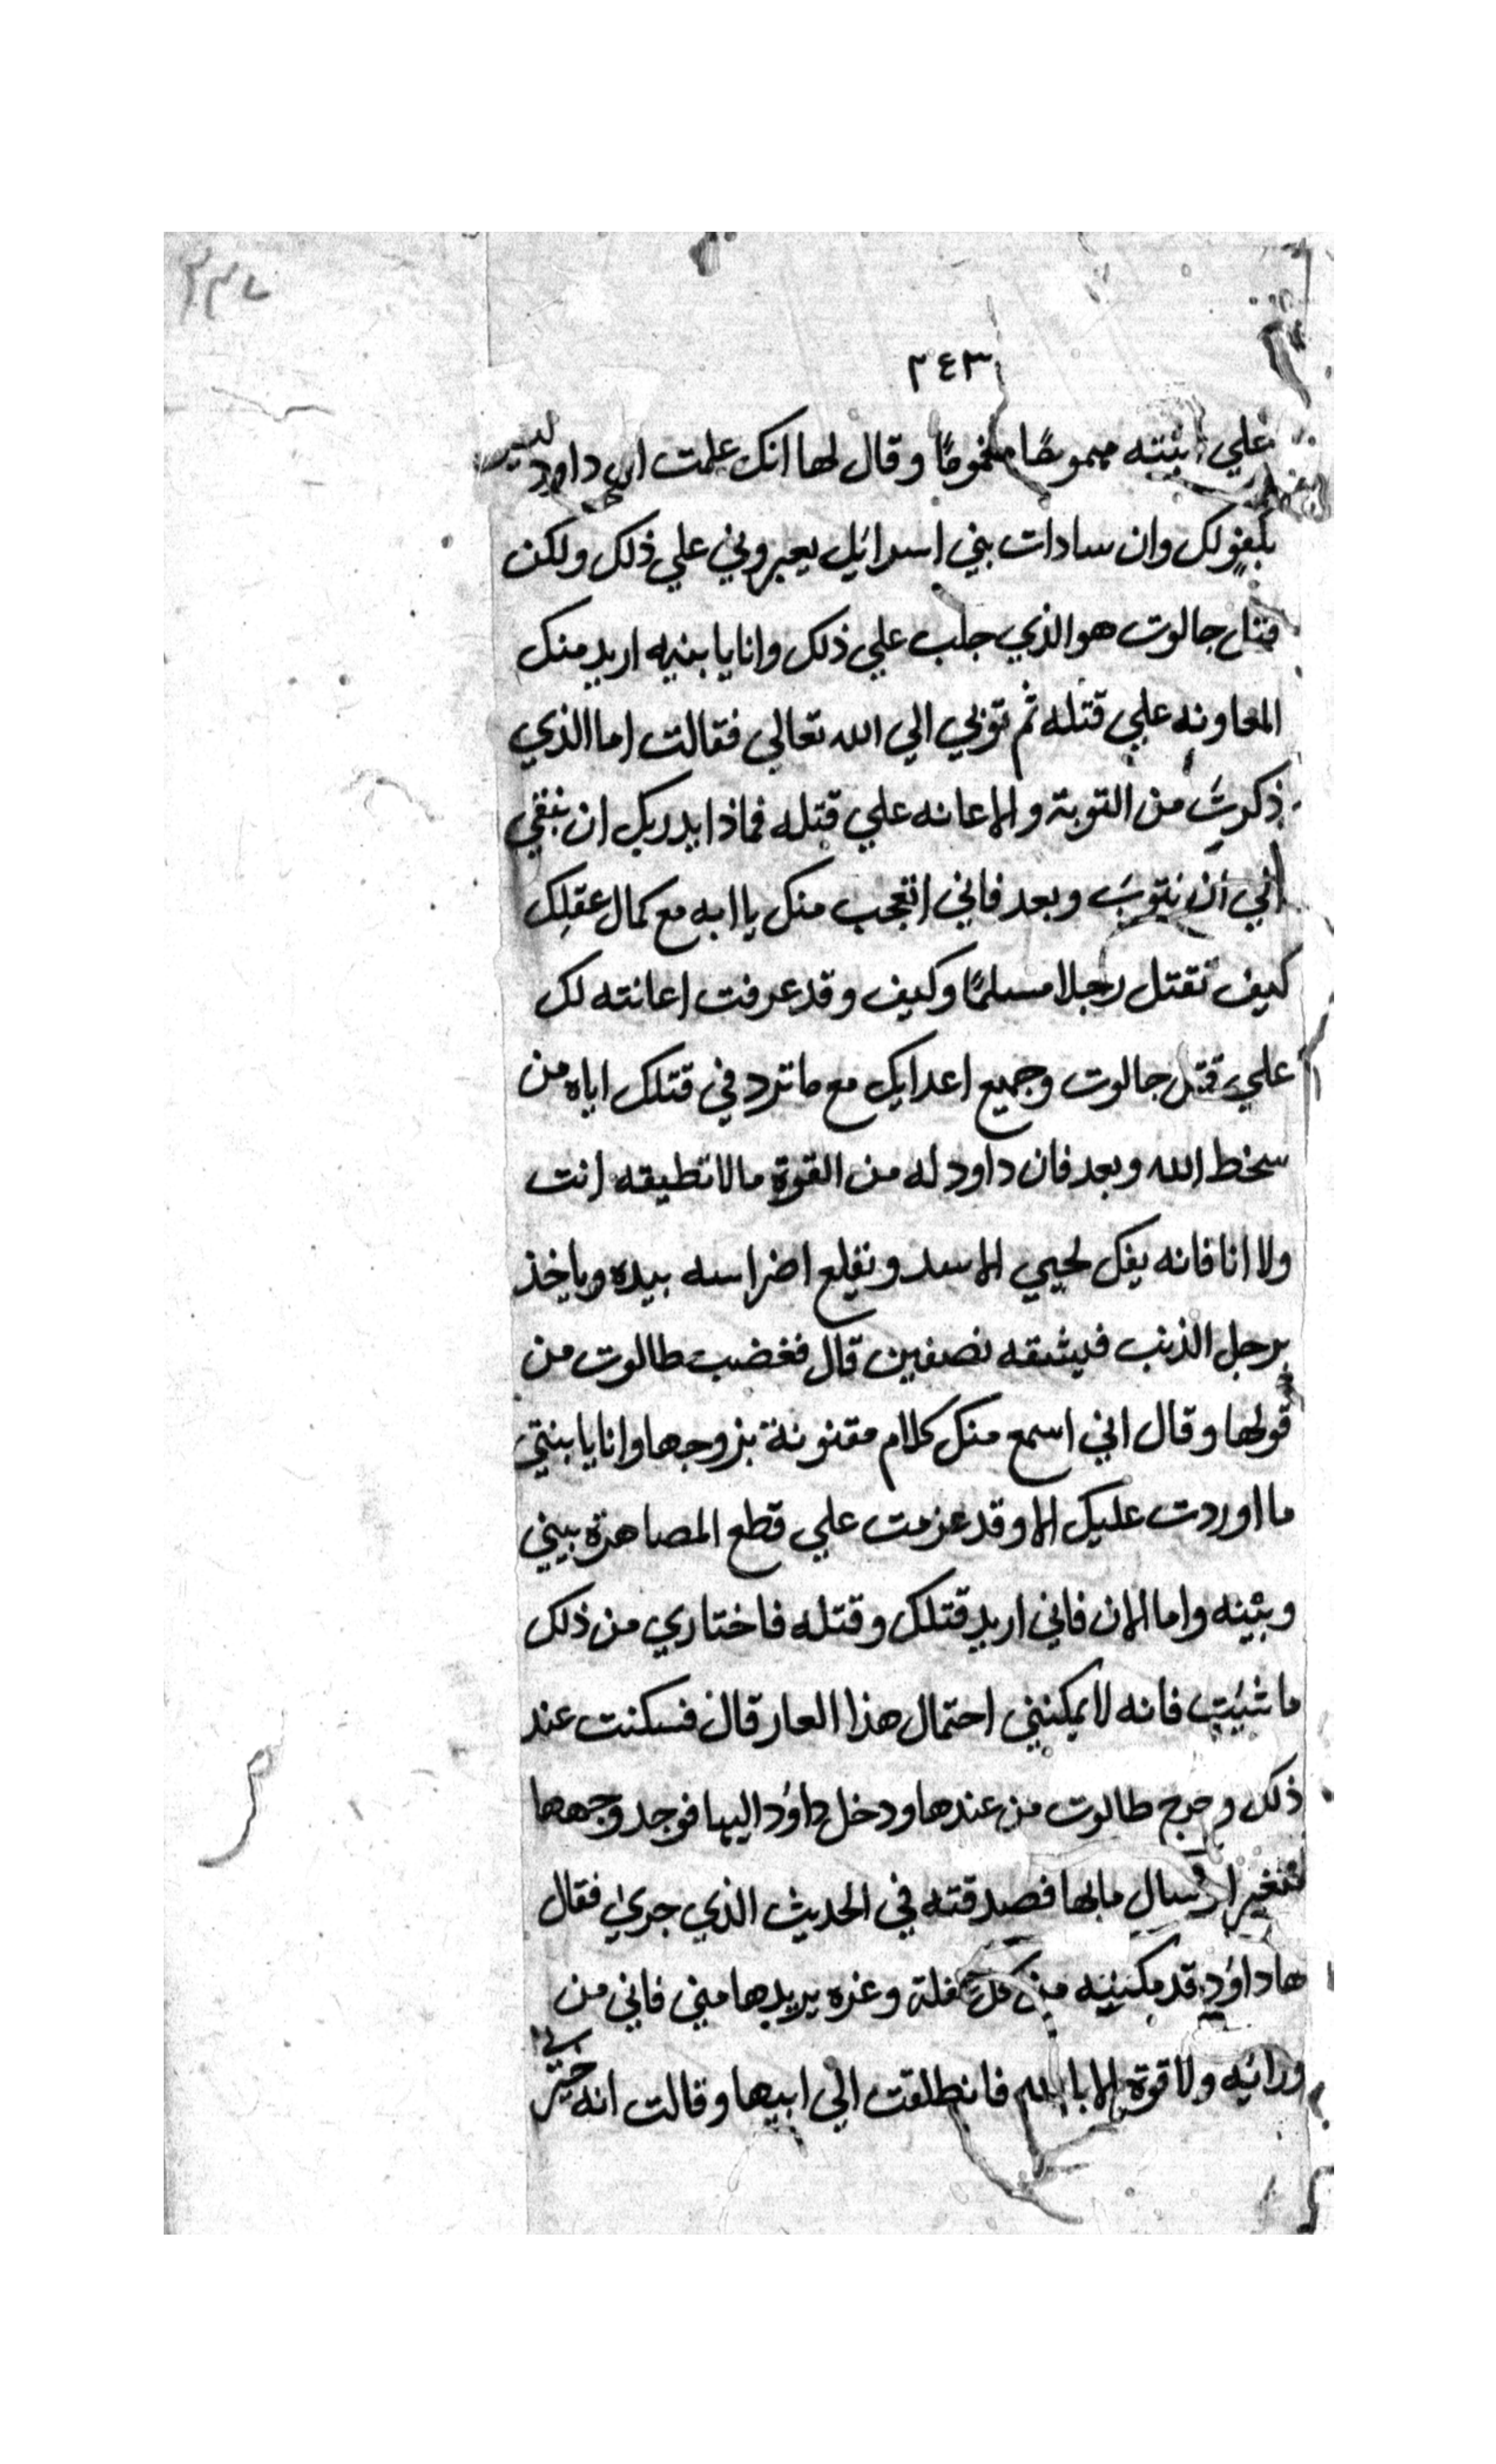 ٢٤٣
علي ابنته مهموما مغموما وقال لها انك علمت ان داود ليس
بكفو لك وان سادات بني اسرائيل يعيروني علي ذلك ولكن
قتل جالوت هو الذي جلب علي ذلك وانا يا بنيه اريد منك
المعاونه علي قتله ثم توبي الي الله تعالي فقالت اما الذي
ذكرت من التوبة والاعانه علي قتله فماذا يدريك ان نبقي
الي ان نتوب وبعد فاني اتعجب منك يا ابه مع كمال عقلك
كيف تقتل رجلا مسلما وكيف وقد عرفت اعانته لك
علي قتل جالوت وجميع اعدايك مع ما ترد في قتلك اياه من
سخط الله وبعد فان داود له من القوة ما لا تطيقه انت
ولا انا فانه يفك لحيي الاسد ونقلع اضراسه بيده وياخذ
برجل الذيب فيشقه نصفين قال فغضب طالوت من
قولها وقال اني اسمع منك كلام مفتونة بزوجها وانا يا بنتي
ما اوردت عليك الا وقد عزمت علي قطع المصاهرة بيني
وبينه واما الان فاني اريد قتلك وقتله فاختاري من ذلك
ما شيت فانه لا يمكنني احتمال هذا العار قال فسكتت عند
ذلك وخرج طالوت من عندها ودخل داود اليها فوجد وجهها
متغيرا فسال ما بها فصدقته في الحديث الذي جري فقال
لها داود قد مكنيه من كل غفلة وغره يريدها مني فاني من
ورائيه ولا قوة الا بالله فانطلقت الي ابيها وقالت انه